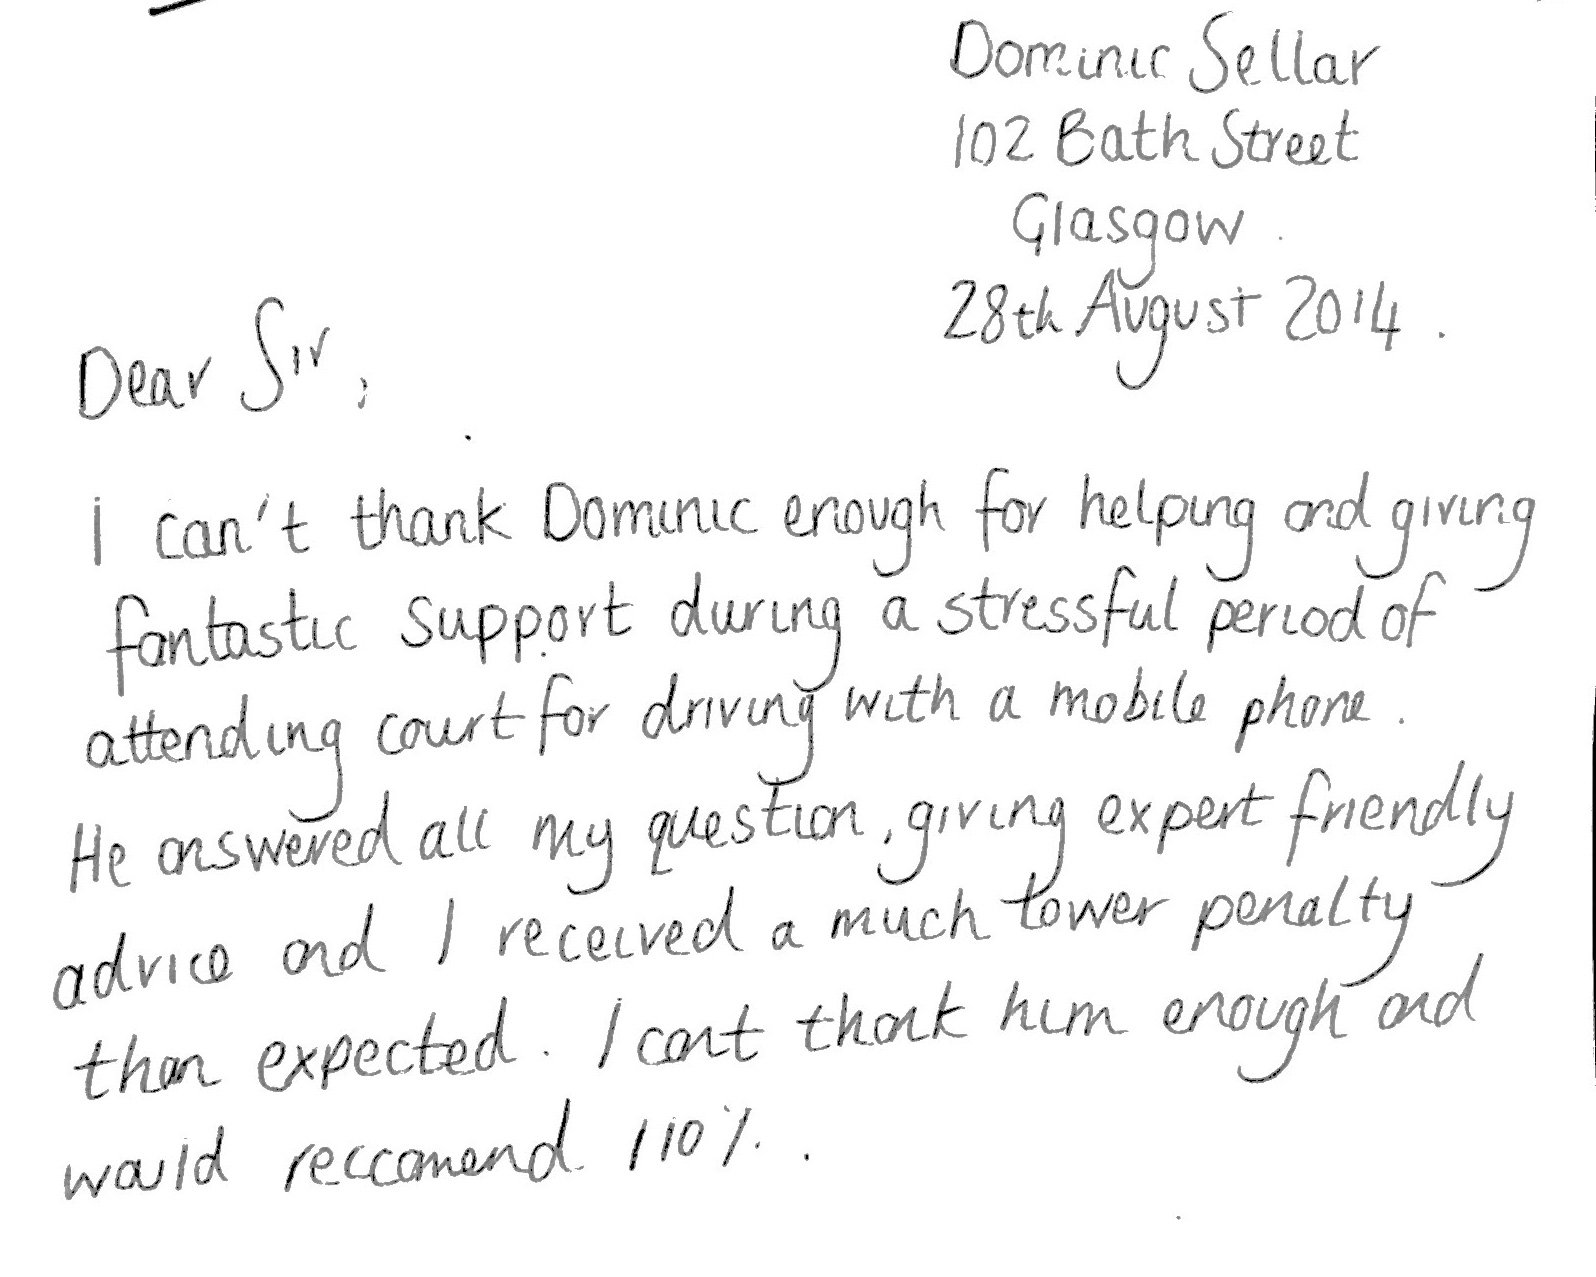 Dominic Sellar
102 Bath Street
Glasgow.
28th August 2014.
Dear Sir,
I can't thank Dominic enough for helping and giving
fantastic support during a stressful period of
attending court for driving with a mobile phone.
He answered all my question, giving expert friendly
advice and I received a much lower penalty
than expected. I cant thank him enough and
would reccomend 110%.